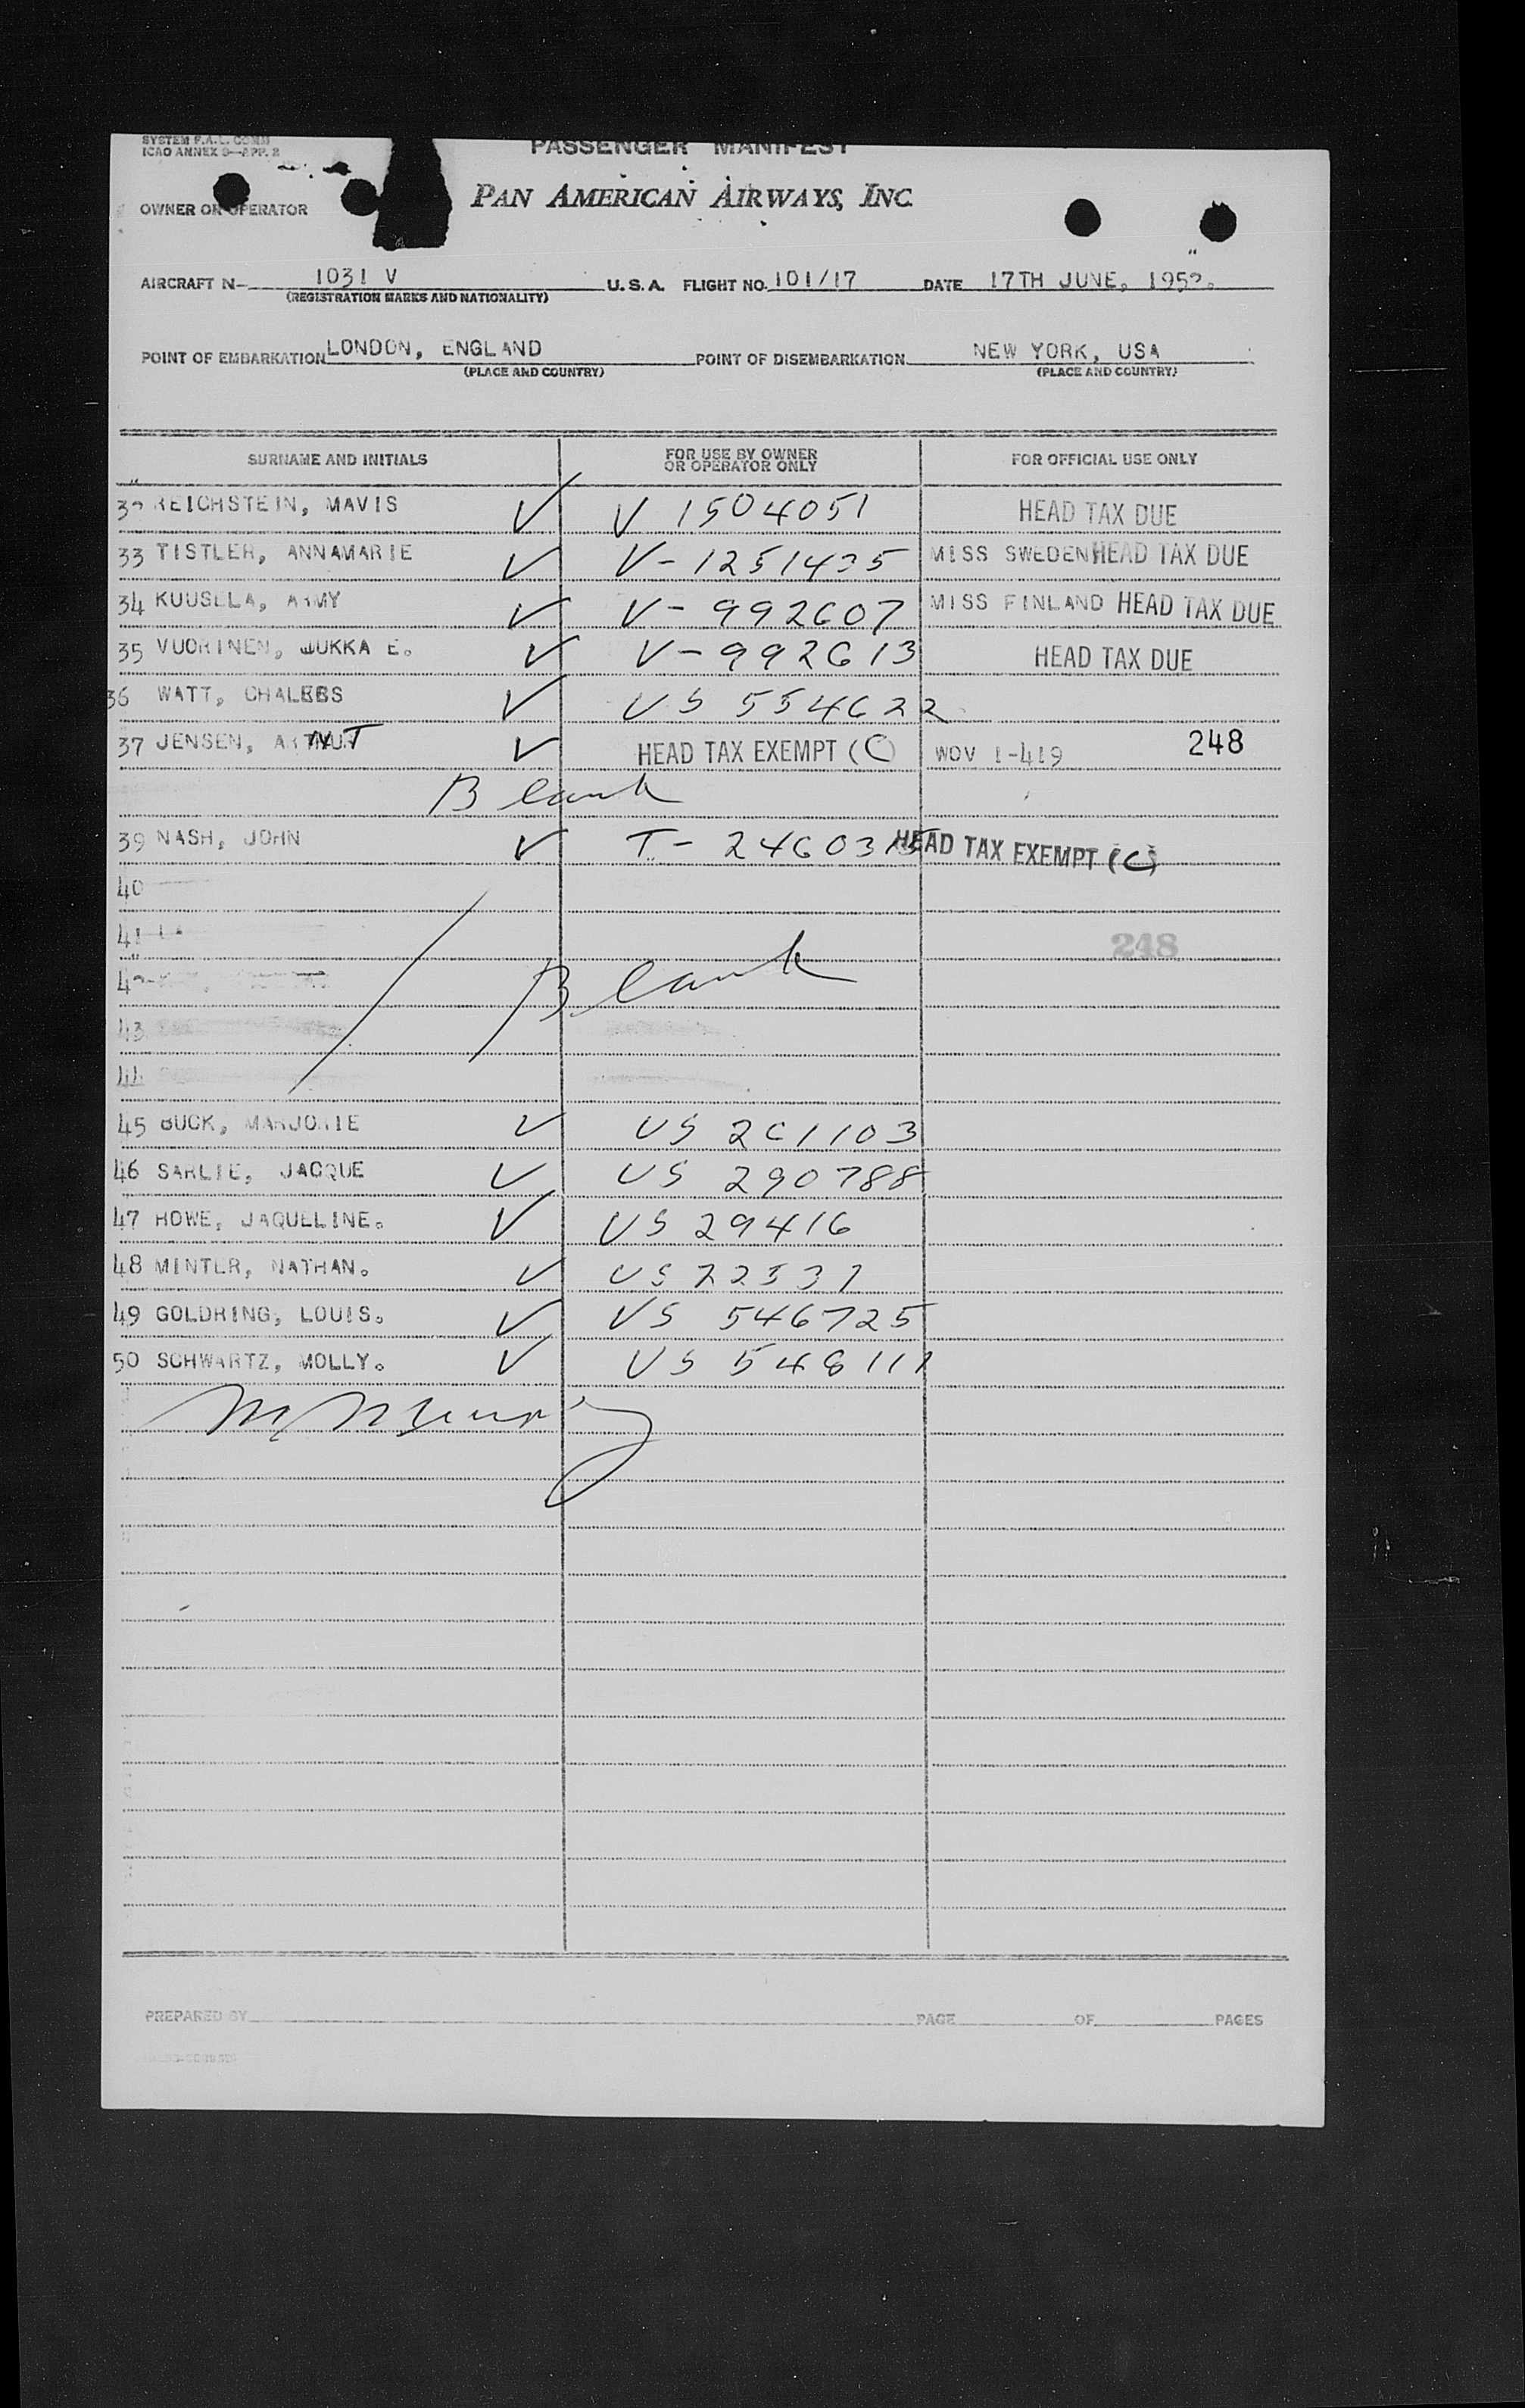 SYSTEM F.A.L. COMM
ICAO ANNEX 9—APP. 2
PASSENGER MANIFEST
OWNER OR OPERATOR
PAN AMERICAN AIRWAYS, INC
AIRCRAFT N- 1031 V U.S.A. FLIGHT NO. 101/17 DATE 17TH JUNE, 1952.
(REGISTRATION MARKS AND NATIONALITY)
POINT OF EMBARKATION LONDON, ENGLAND POINT OF DISEMBARKATION NEW YORK, USA
(PLACE AND COUNTRY) (PLACE AND COUNTRY)
SURNAME AND INITIALS FOR USE BY OWNER OR OPERATOR ONLY FOR OFFICIAL USE ONLY
32 REICHSTEIN, MAVIS ✓ V 1504051 HEAD TAX DUE
33 TISTLER, ANNAMARIE ✓ V-1251435 MISS SWEDEN HEAD TAX DUE
34 KUUSELA, ARMY ✓ V-992607 MISS FINLAND HEAD TAX DUE
35 VUORINEN, JUKKA E. ✓ V-992613 HEAD TAX DUE
36 WATT, ✓ US 554622
37 JENSEN, ✓ HEAD TAX EXEMPT (C) WOV 1-419 248
Blank
39 NASH, JOHN ✓ T-2460315 HEAD TAX EXEMPT (C)
40
41
248
42
Blank
43
44
45 BUCK, MARJORIE ✓ US 261103
46 SARLIE, JACQUE ✓ US 290788
47 HOWE, JAQUELINE. ✓ US 29416
48 MINTER, NATHAN. ✓ US 22537
49 GOLDRING, LOUIS. ✓ US 546725
50 SCHWARTZ, MOLLY. ✓ US 548111
PREPARED BY PAGE OF PAGES